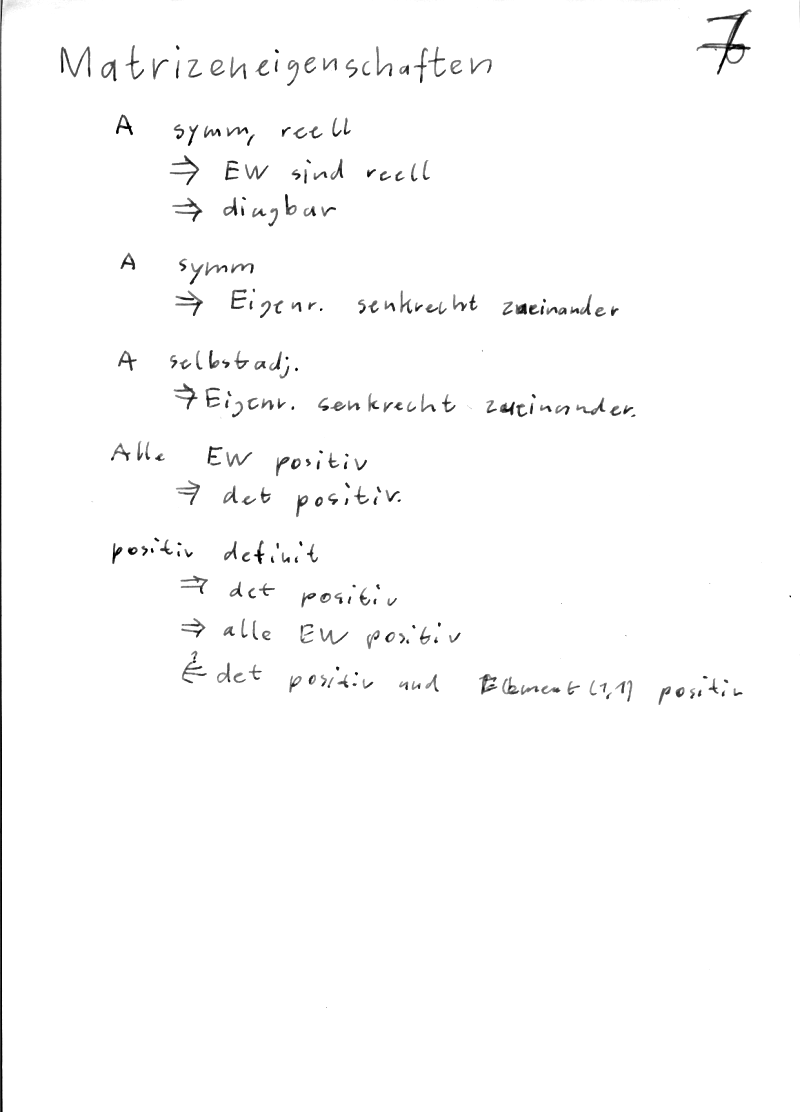 Matrizeneigenschaften
A symm, reell
⇒ EW sind reell
⇒ diagbar
A symm
⇒ Eigenr. senkrecht zueinander
A selbstadj.
⇒ Eigenr. senkrecht zueinander.
Alle EW positiv
⇒ det positiv.
positiv definit
⇒ det positiv
⇒ alle EW positiv
?
⇐ det positiv und Element (1,1) positiv